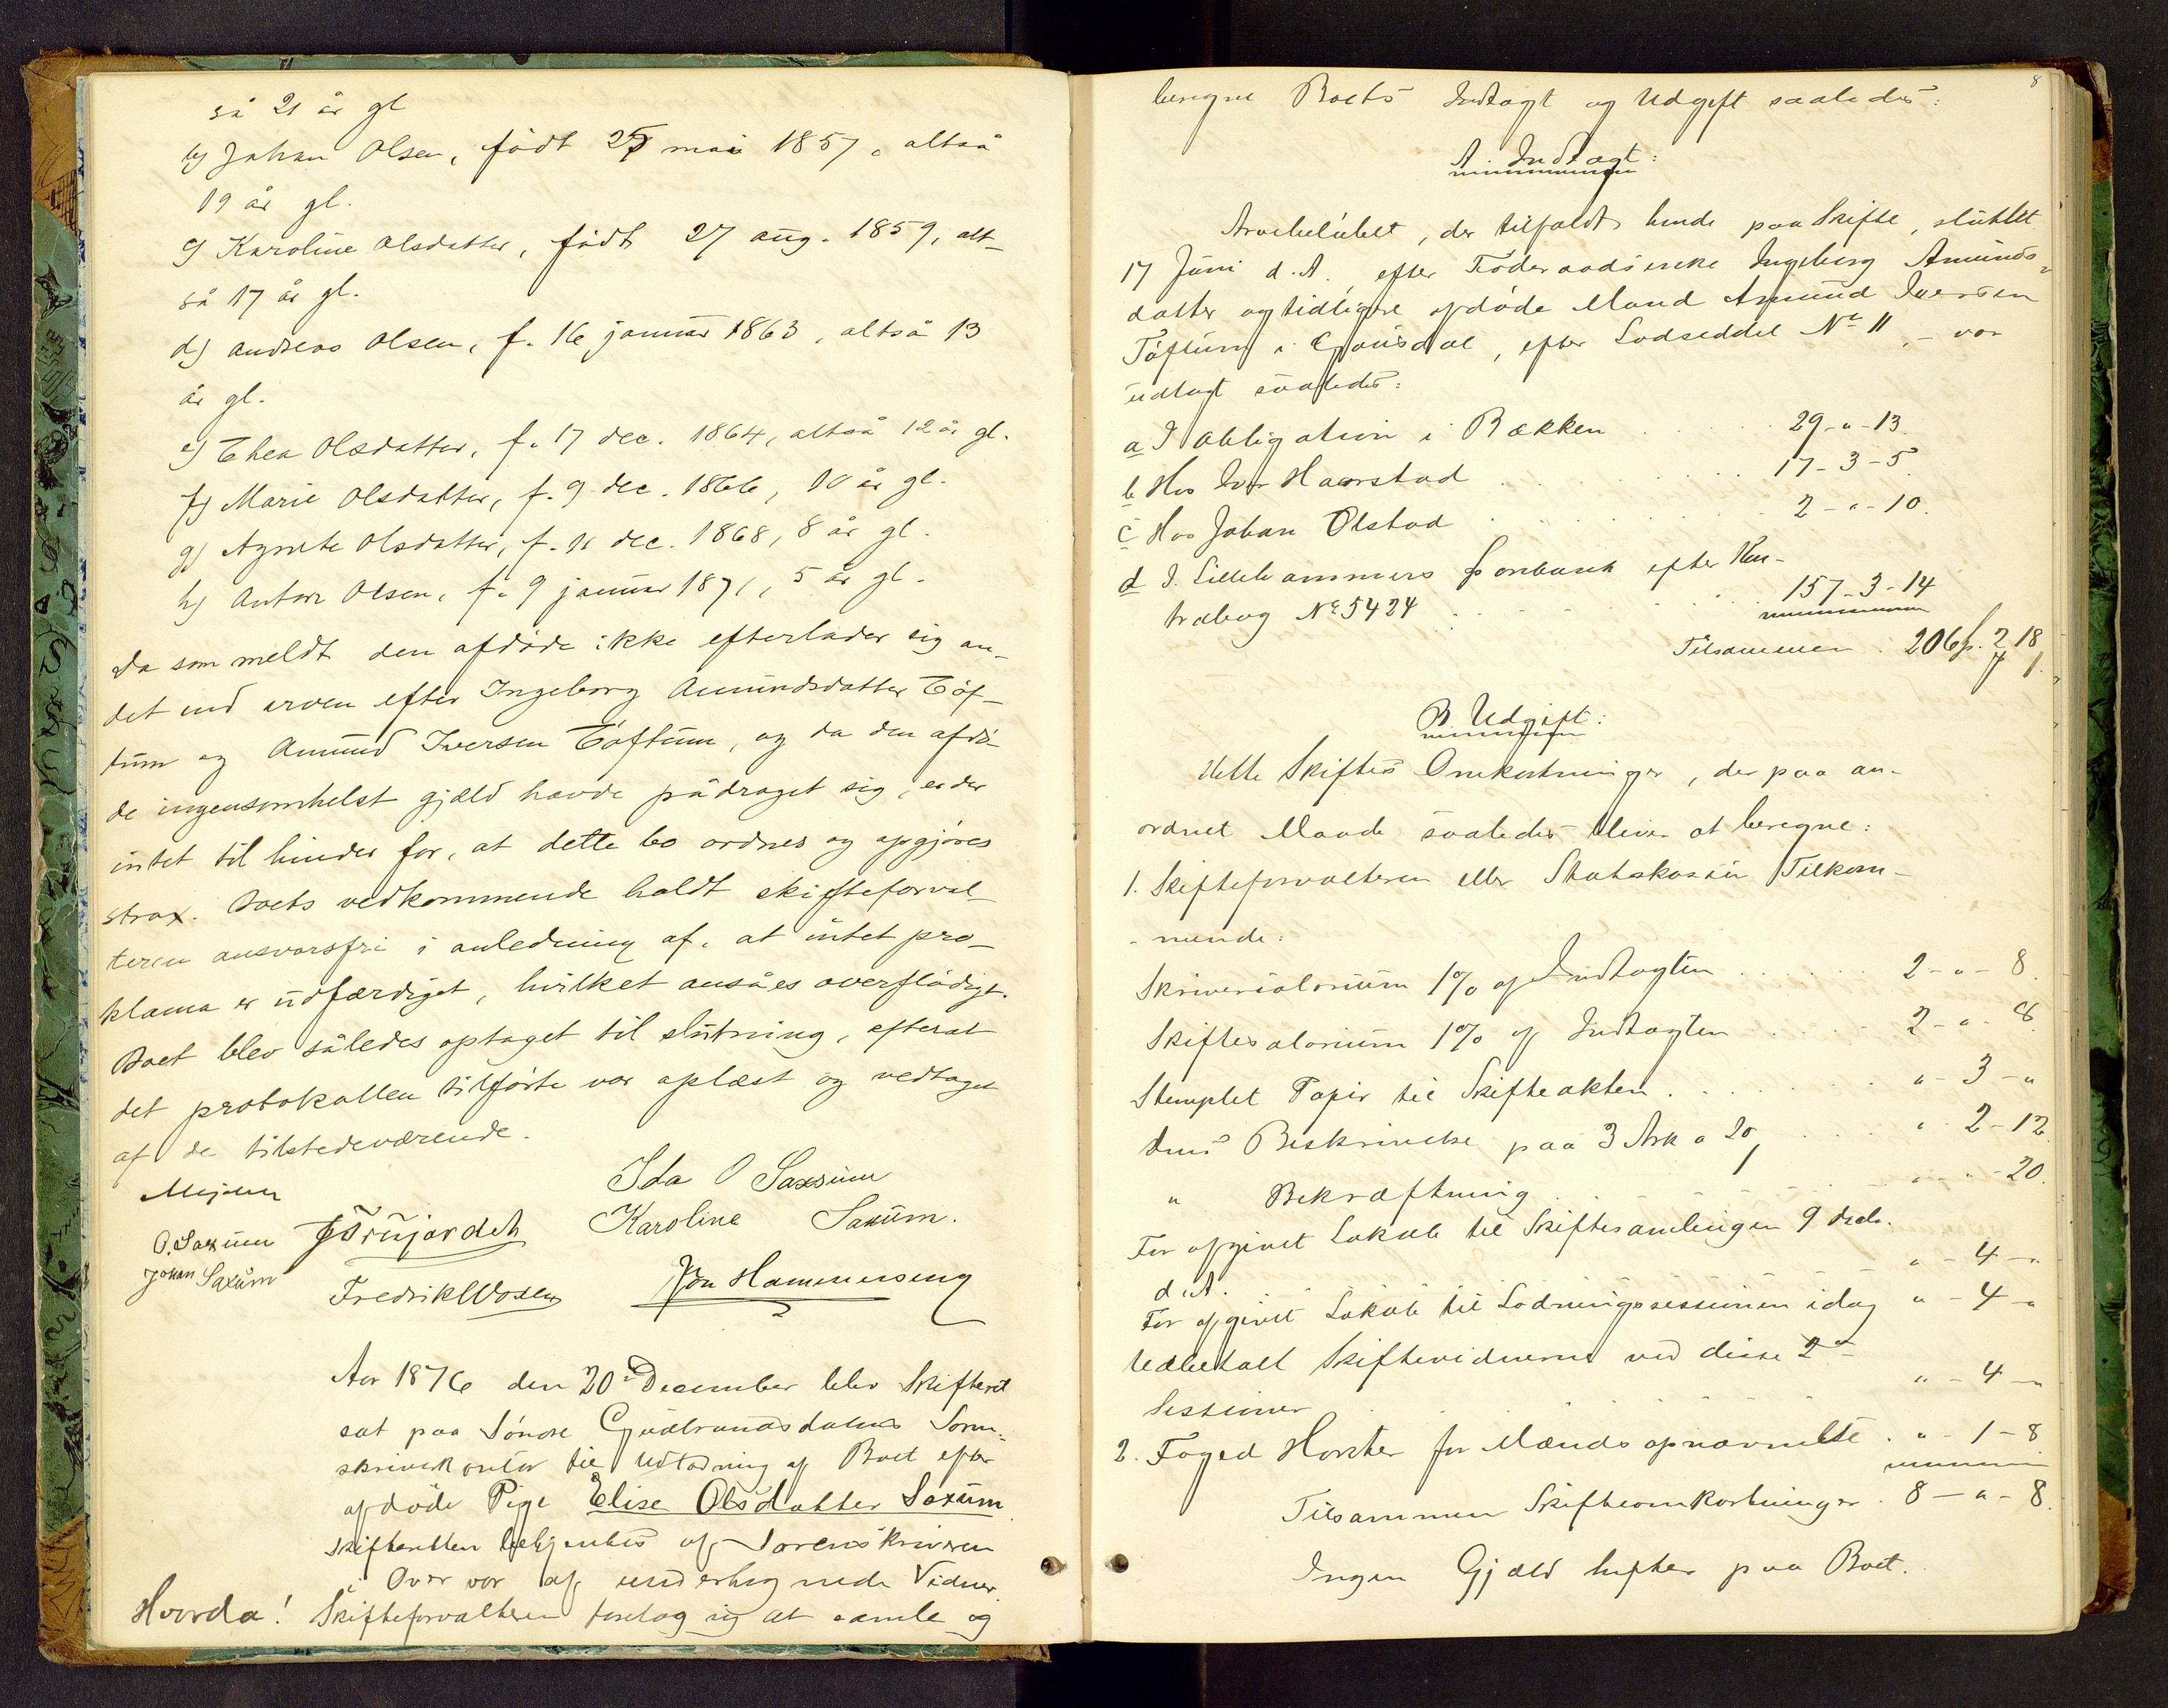 så 21 år gl
b) Johan Olsen, födt 25 mai 1857, altså
19 år gl.
c) Karoline Olsdatter, födt 27 aug. 1859, alt-
så 17 år gl.
d) Andreas Olsen, f. 16 januar 1863, altså 13
år gl.
e) Thea Olsdatter, f. 17 dec. 1864, altså 12 år gl.
f) Marie Olsdatter, f. 9 dec. 1866, 10 år gl.
g) Agnete Olsdatter, f. 11 dec. 1868, 8 år gl.
h) Anton Olsen, f. 9 januar 1871, 5 år gl.
Da som meldt den afdöde ikke efterlader sig an-
det end arven efter Ingeborg Amundsdatter Töf-
tum og Amund Iversen Töftum, og da den afdö-
de ingensomhelst gjæld havde pådraget sig, er der
intet til hinder for, at dette bo ordnes og opgjöres
strax. Boets vedkommende holdt skifteforval-
teren ansvarsfri i anledning af, at intet pro-
klama er udfærdiget, hvilket ansåes overflödigt.
Boet blev således optaget til slutning, efterat
det protokollen tilförte var oplæst og vedtaget
af de tilstedeværende.
Mejdell
Ida O Saxsum
O. Saxum JBrujordet Karoline Saxum.
Johan Saxum
Fredrik Wosen Jon Hammerseng
Aar 1876 den 20de December blev Skifteret
sat paa Söndre Gudbrandsdalens Soren-
skriverkontor til Udlodning af Boet efter
afdöde Pige Elise Olsdatter Saxum
Skifteretten betjentes af Sorenskriveren
i Over vær af undertegnede Vidner.
Hvorda! Skifteforvalteren foretog sig at samle og
8
beregne Boets Indtægt og Udgift saaledes:
A. Indtægt:
Arvebelöbet, der tilfaldt hende paa Skifte, sluttet
17 Juni d. A. efter Föderaadsenke Ingeborg Amunds-
datter og tidligere afdöde Mand Amund Iversen
Töftum i Gausdal, efter Lodseddel No 11, - var
udlagt saaledes:
a I Obligation i Bækken . . . 29-"-13.
b Hos Iver Haarstad . . . 17-3-5.
c Hos Johan Olstad . . . 2-"-10.
d I Lillehammers Sparebank efter Kon-
trabog No 5424 . . . 157-3-14
Tilsammen 206 2 18
B. Udgift:
Dette Skiftes Omkostninger, der paa an-
ordnet Maade saaledes bliver at beregne:
1. Skifteforvalteren eller Statskassen Tilkom-
- mende:
Skriversalarium 1% af Indtægten . . . 2-"-8.
Skiftesalarium 1% af Indtægten . . . 2-"-8.
Stemplet Papir til Skifteakten . . . "-3-"
Dens Beskrivelse paa 3 Ark a 20 . . . " 2-12
" Bekræftning . . . "-"-20.
For afgivet Lokale til Skiftesamlingen 9 ds.
d. A. "-4-"
For afgivet Lokale til Lodningssessionen idag "-4-"
Udbetalt Skiftevidnerne ved disse 2de
Sessioner "-4-"
2. Foged Horster for Mænds opnævnelse . "-1-8
Tilsammen Skifteomkostninger . 8-"-8.
Ingen Gjæld hefter paa Boet.